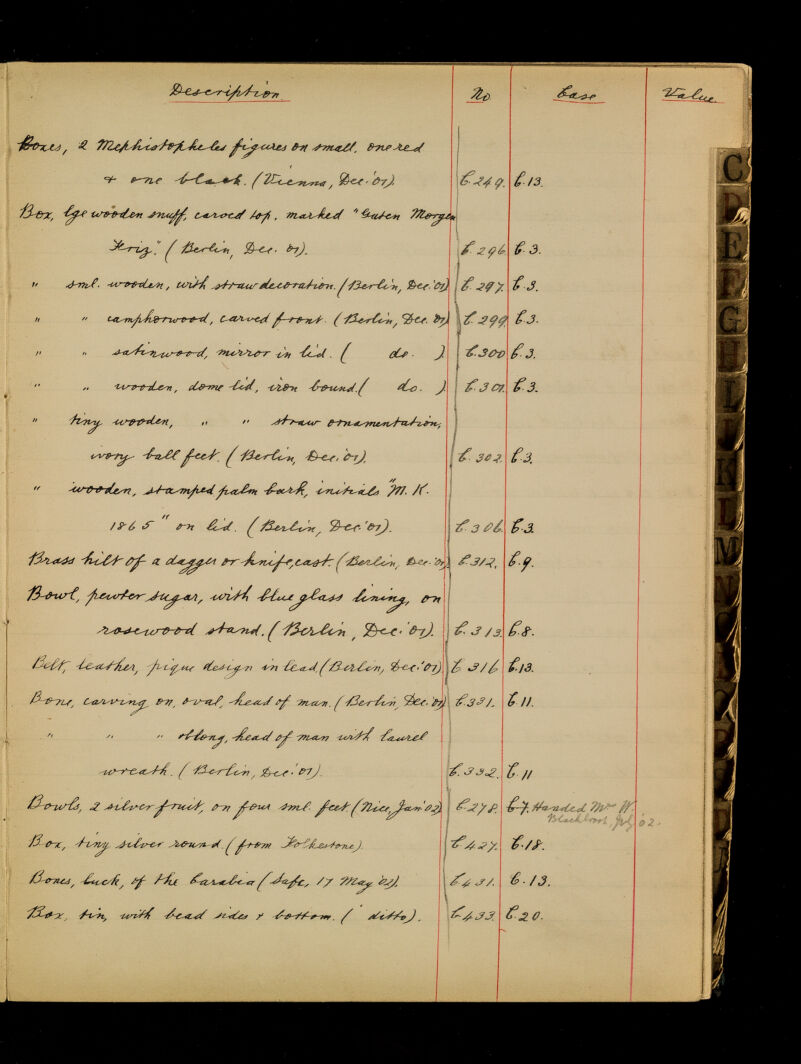 Description No Case Value
Boxes, 2 Mephistopheles figures on small. one red
+ one black. (Vienna, Dec. '01). C. 249. C.13.
Box, lge wooden snuff, carved top. marked "Guten Morgen
Kriz." (Berlin, Dec. '01). C. 296 C. 3.
" sml. wooden, with straw decoration. (Berlin, Dec. '01) C. 297. C.3.
" " camphorwood, carved front. (Berlin, Dec. '01) C. 299 C.3.
" " satinwood, mirror in lid. ( do. ) C.300 C. 3.
" " wooden, dome lid, iron bound. ( do. ) C. 301. C.3.
" tiny wooden, " " straw ornamentation,
ivory ball feet. (Berlin, Dec. '01). C. 302. C.3.
" wooden, stamped palm bark, initials "M. K.
1865" on lid. (Berlin, Dec '01). C. 306. C.3.
Brass hilt of a dagger or knife, cast. (Berlin, Dec. '01) C.312. C.9.
Bowl, pewter sugar, with blue glass lining, on
rosewood stand. (Berlin, Dec. '01). C. 313. C.8.
Belt, leather, pique design in lead. (Berlin, Dec. '01) C 316 C.13.
Bone, carving on, oval, head of man. (Berlin, Dec. '01) C.331. C 11.
" " " oblong, head of man with laurel
wreath. (Berlin, Dec. '01). C.332. C. 11
Bowls, 2 silver fruit, on four sml. feet. (Nice, Jan '02) C.278. C.7. Handed Mr W.
July '02.
Box, tiny silver round. (from Folkestone). C 427. C.18.
Bones, luck, of the Carabia (Safe, 17 May '02). C431. C.13.
Box, tin, with bead sides + bottom. ( ditto). C.433. C.20.
C
D
E
F
G
H
I
J
K
L
M
N